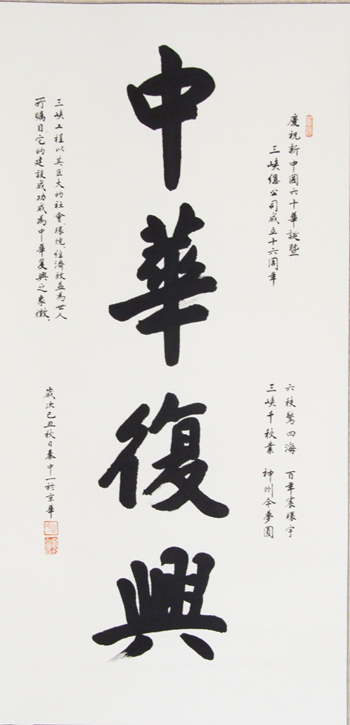 慶祝新中國六十華誕暨
三峽總公司成立十六周年
六秩驚四海 百年震環宇
三峽千秋業 神州今夢圓
中華復興
三峽工程以其巨大的社會、環境、經濟效益為世人
所矚目,它的建設成功成為中華复興之象徵.
歲次己丑秋日秦中一於京華